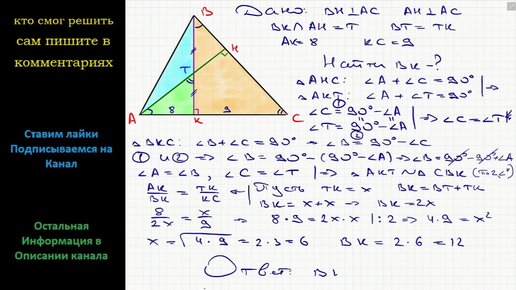 кто смог решить
сам пишите в
комментариях
Ставим лайки
Подписываемся на
Канал
Остальная
Информация в
Описании канала
B
H
T
A
8
K
9
C
Дано: BH⊥AC AH⊥AC
BK∩AH=T BT=TK
AK=8 KC=9
Найти BK-?
△AHC: ∠A+∠C=90°
△AKT: ∠A+∠T=90°
∠C=90°-∠A
∠T=90°-∠A
⇒ ∠C=∠T
△BKC: ∠B+∠C=90° ⇒ ∠B=90°-∠C
① и ② ⇒ ∠B=90°-(90°-∠A) ⇒ ∠B=90°-90°+∠A
∠A=∠B, ∠C=∠T | ⇒ △AKT ∾ △CBK (по 2∠)
AK/BK = TK/KC Пусть TK=x BK=BT+TK
BK=x+x ⇒ BK=2x
8/2x = x/9 ⇒ 8·9=2x·x |:2 ⇒ 4·9=x²
x=√4·9=2·3=6 BK=2·6=12
Ответ: B